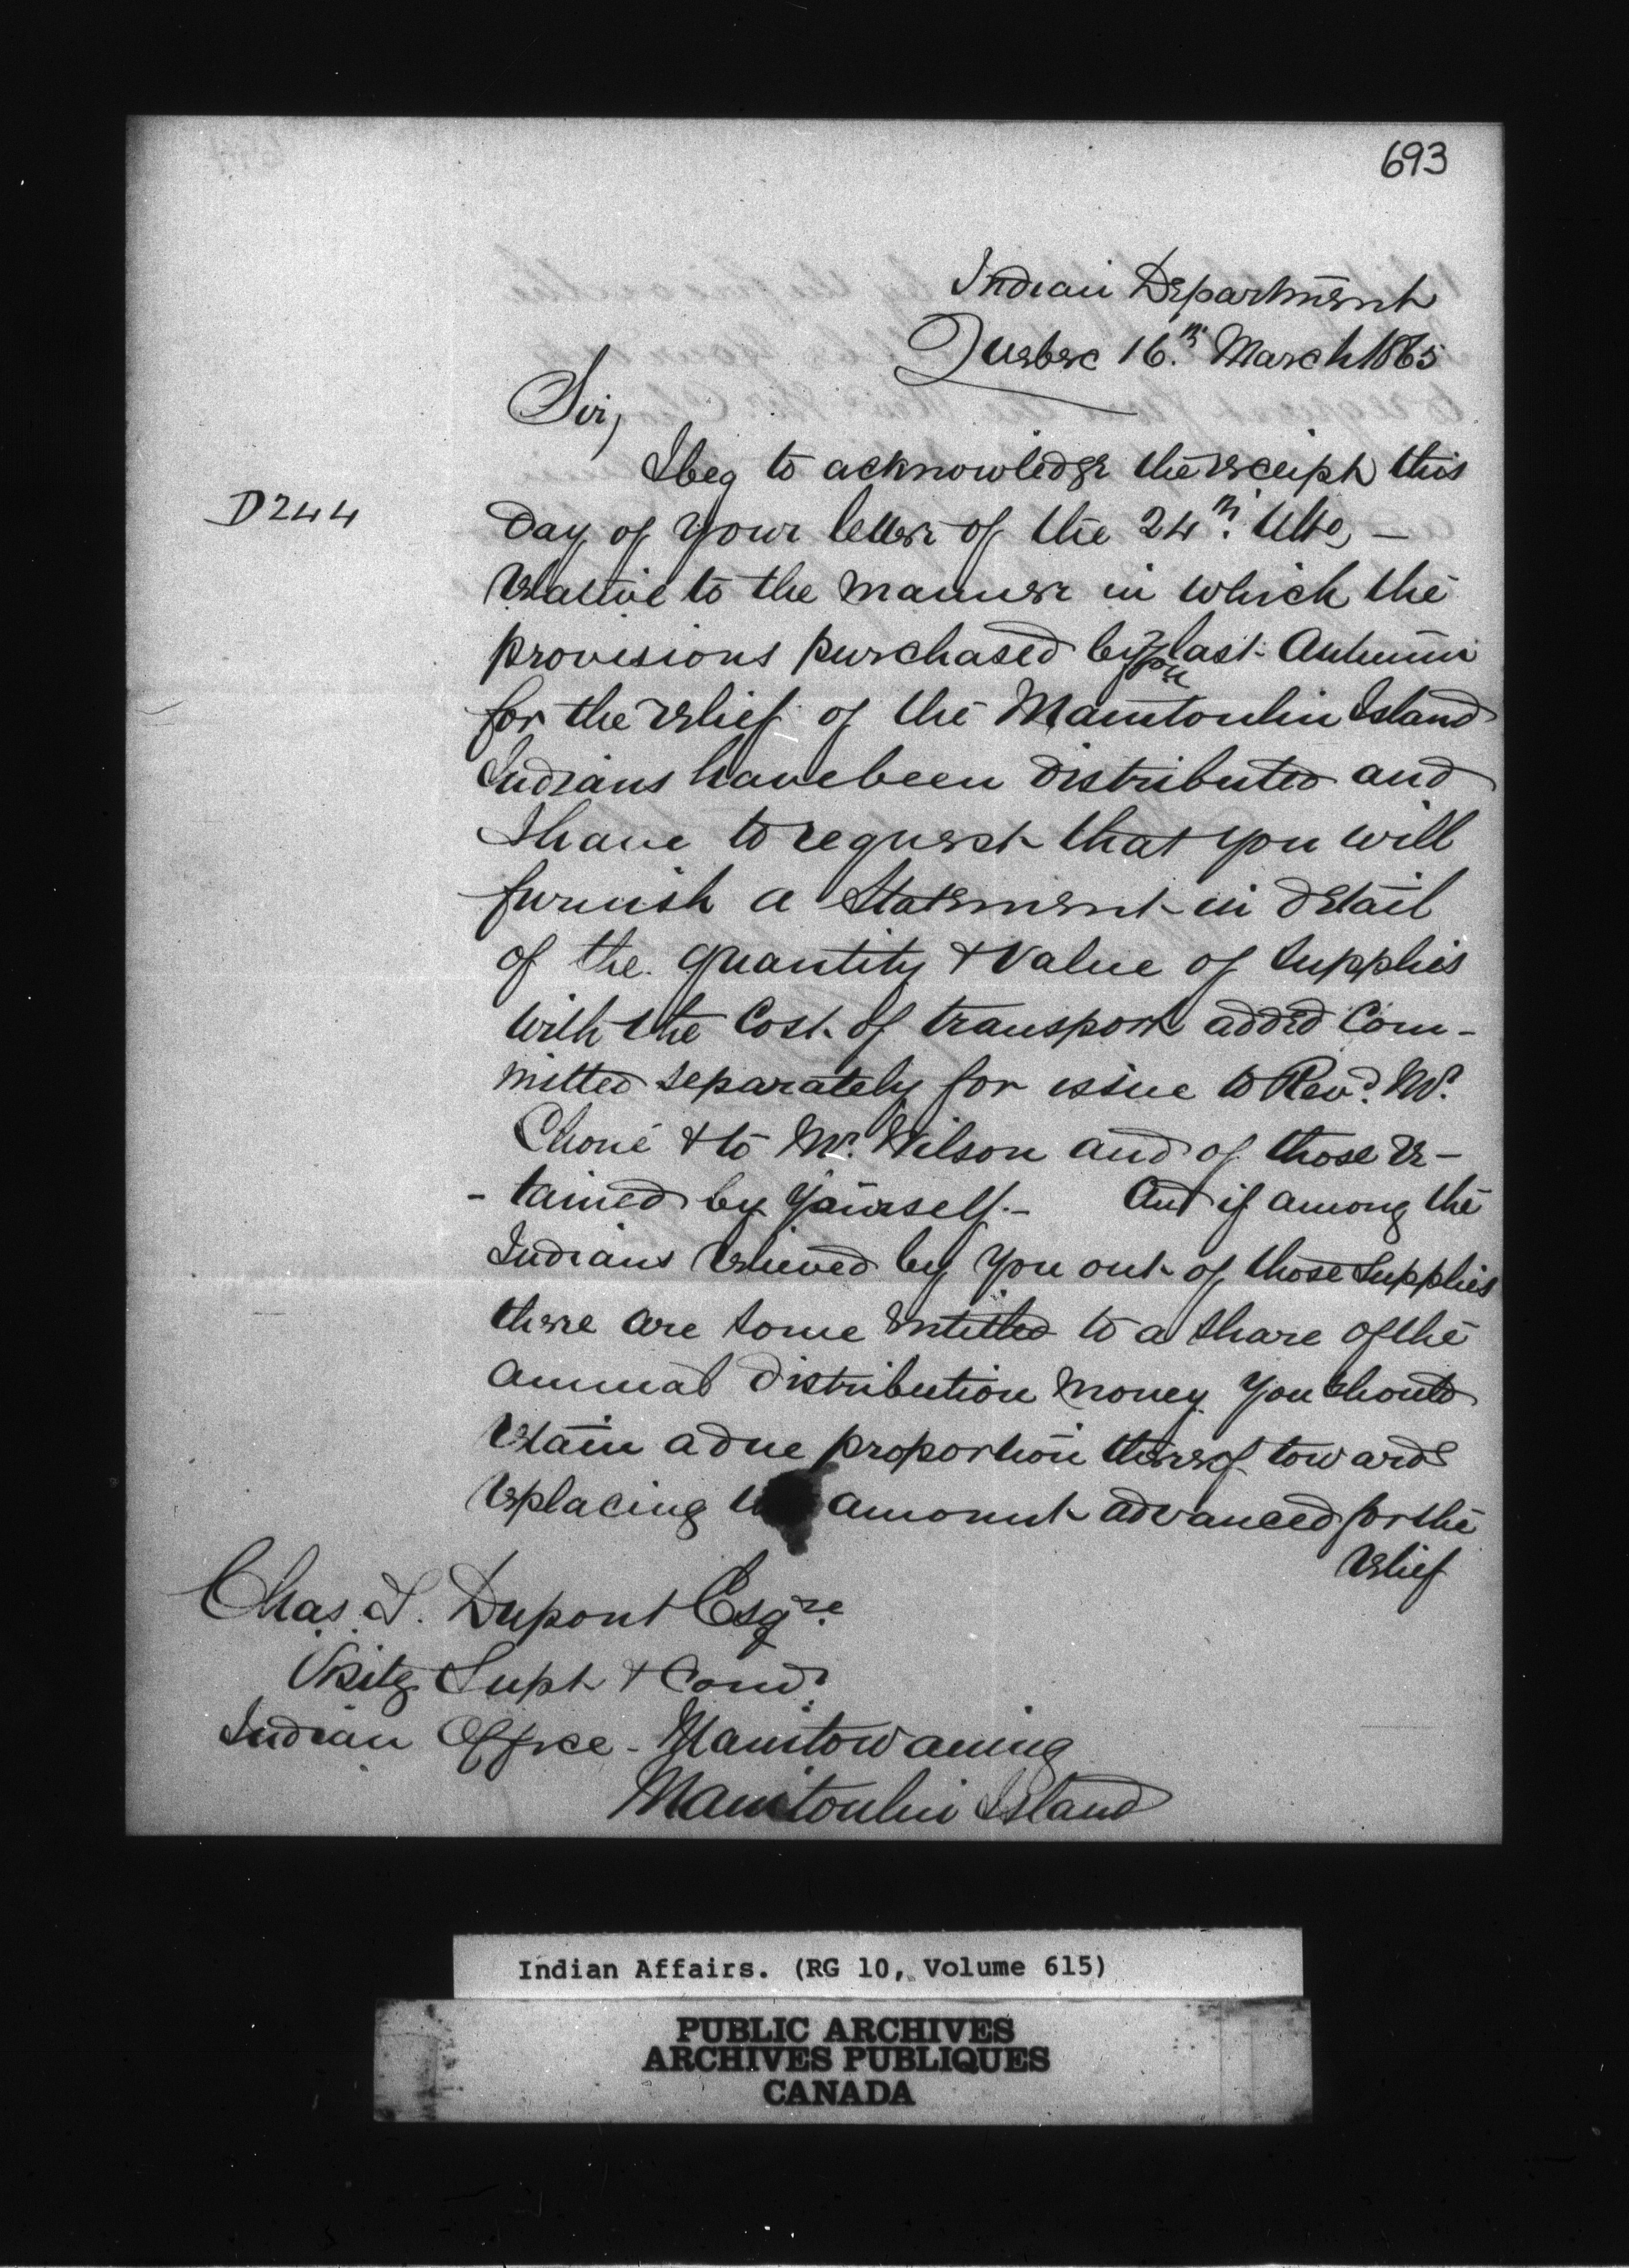 693
Indian Department
Quebec 16.th March 1865
Sir,
I beg to acknowledge the receipt this
D244
day of your letter of the 24th. Ulto, –
relative to the manner in which the
provisions purchased by you last Autumn
for the relief of the Manitoulin Island
Indians have been distributed and
I have to request that you will
furnish a Statement in detail
of the quantity & value of supplies
with the Cost of transport added Com-
mitted separately for issue to Revd. Mr.
Choné & to Mr. Wilson and of those re-
-tained by yourself. – And if among the
Indians relieved by you out of those supplies
there are some entitled to a share of the
annual distribution money you should
retain a due proportion thereof towards
replacing amount advanced for the
relief
Chas. T. Dupont Esqre.
Visitg Supt & Comr.
Indian Office - Manitowaning
Manitoulin Island
Indian Affairs. (RG 10, Volume 615)
PUBLIC ARCHIVES
ARCHIVES PUBLIQUES
CANADA